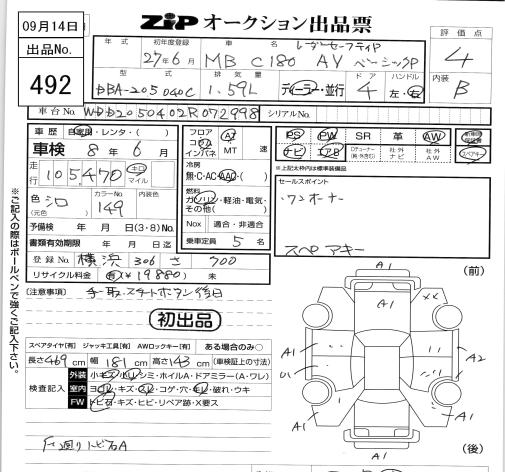 09月14日
出品No.
492
ZIP オークション出品票
年式 初年度登録 車名 評価点
27年6月 MB C180 AV レーダーセーフティP ベーシックP 4
型式 排気量 ドア ハンドル 内装
DBA-205040C 1.59L ディーラー・並行 4 左・右 B
車台No. WDD2050402R072998 シリアルNo.
車歴 自家用・レンタ・( )
車検 8年 6月
走行 105,470 キロ マイル
色 シロ (元色) カラーNo. 149
予備検 年 月 日(3・8)No.
書類有効期限 年 月 日迄
登録No. 横浜 306 さ 700
リサイクル料金 有(¥19880) 未
フロア コラム インパネ AT MT 速
冷房 無・C・AC・AAC・( )
燃料 ガソリン・軽油・電気・その他( )
Nox 適合・非適合
乗車定員 5 名
PS PW SR 革 AW 新車時保証書
ナビ エアB Dチューナー 社外ナビ 社外AW スペアキー
※上記太枠内は標準装備品
セールスポイント
ワンオーナー
スペアキー
(注意事項) 手・取・スマートボタン後日
初出品
スペアタイヤ[有] ジャッキ工具[有] AWロックキー[有] ある場合のみ○
長さ469cm 幅181cm 高さ143cm (車検証上の寸法)
検査記入
外装 小キズ・凹・シミ・ホイルA・ドアミラー(A・ワレ)
室内 ヨゴレ・キズ・スレ・コゲ・穴・キレ・破れ・ウキ
FW トビ石・キズ・ヒビ・リペア跡・X要ス
F廻りトビ石A
※ご記入の際はボールペンで強くご記入下さい。
(前)
A1
A1
××
A1
U1
A2
A1
A1
A1
(後)